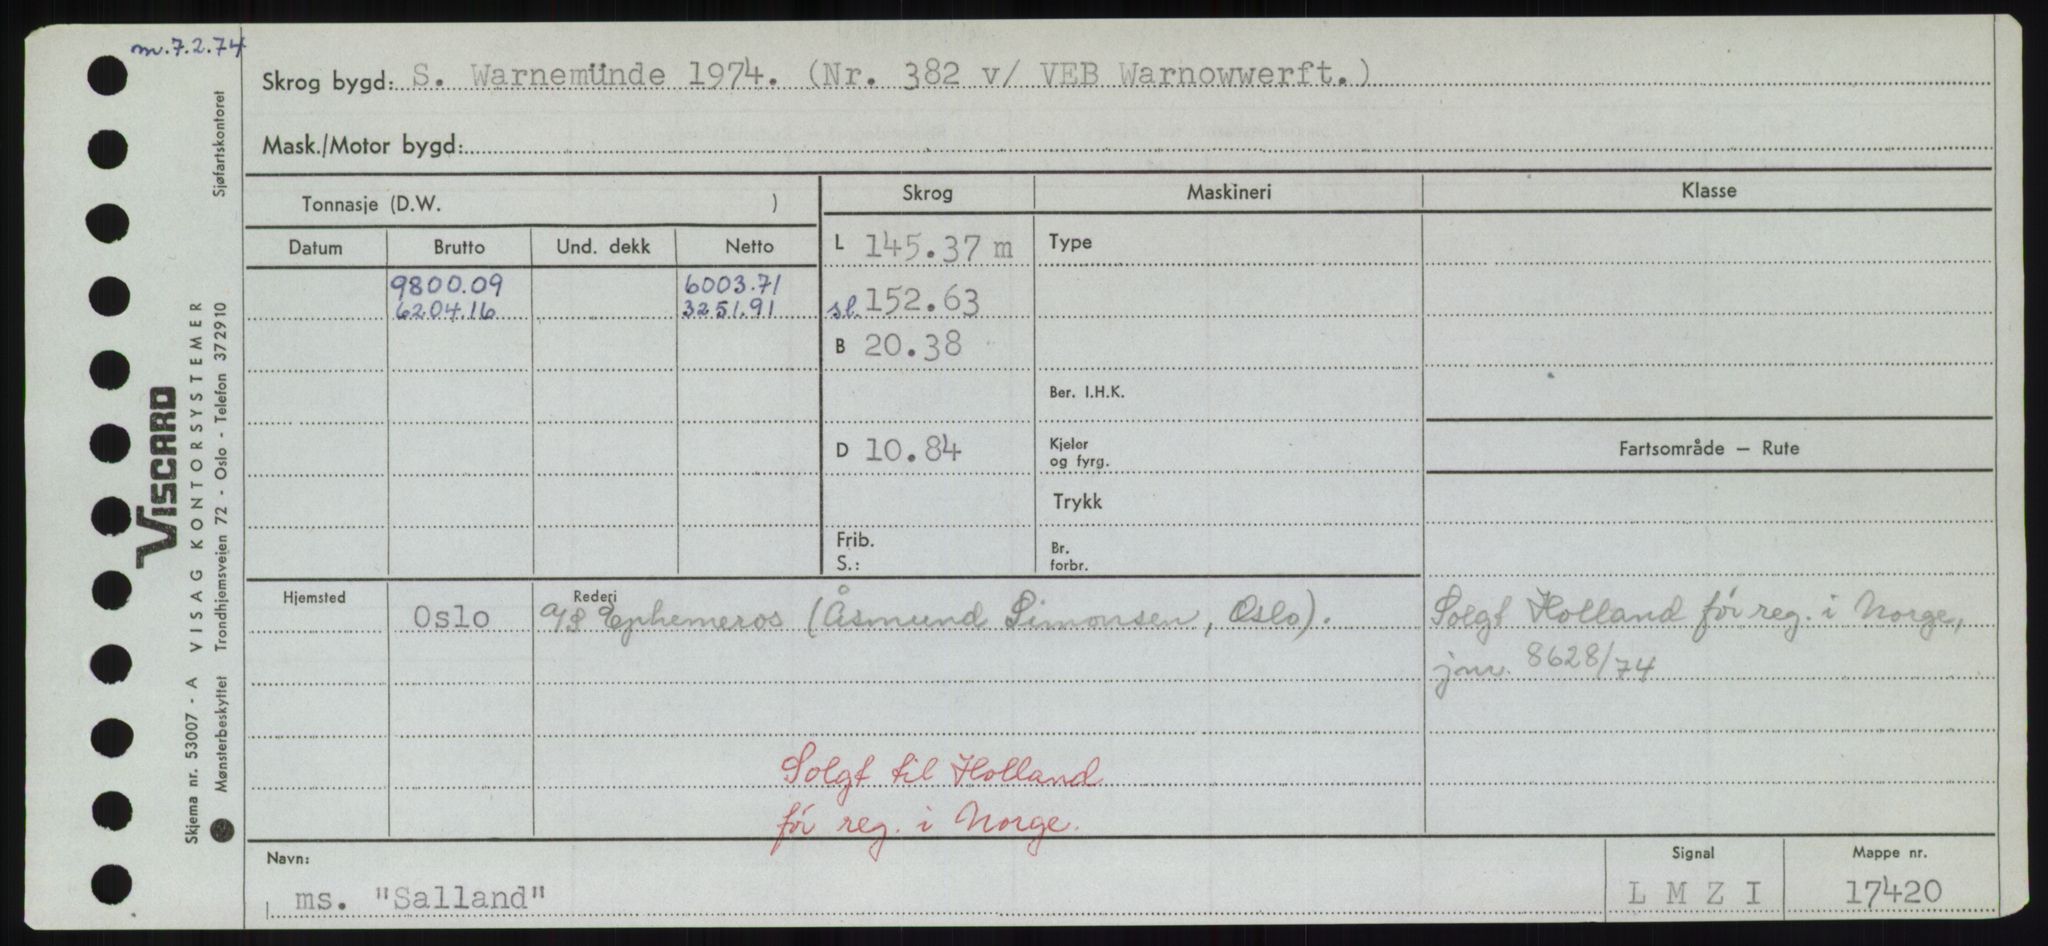 m.7.2.74
Skrog bygd: S. Warnemünde 1974. (Nr. 382 v/ VEB Warnowwerft.)
Mask./Motor bygd:
Tonnasje (D.W. )
Skrog
Maskineri
Klasse
Datum
Brutto
Und. dekk
Netto
9800.09
6003.71
6204.16
3251.91
L 145.37 m
sl. 152.63
B 20.38
D 10.84
Frib.
S.:
Type
Ber. I.H.K.
Kjeler
og fyrg.
Trykk
Br.
forbr.
Fartsområde – Rute
Hjemsted
Oslo
Rederi
A/S Ephemeros (Åsmund Simonsen, Oslo).
Solgt Holland før reg. i Norge,
jnr. 8628/74
Solgt til Holland
før reg. i Norge.
Navn:
ms. "Salland"
Signal
L M Z I
Mappe nr.
17420
VISCARD
Skjema nr. 53007 - A VISAG KONTORSYSTEMER
Mønsterbeskyttet Trondhjemsveien 72 - Oslo - Telefon 372910
Sjøfartskontoret